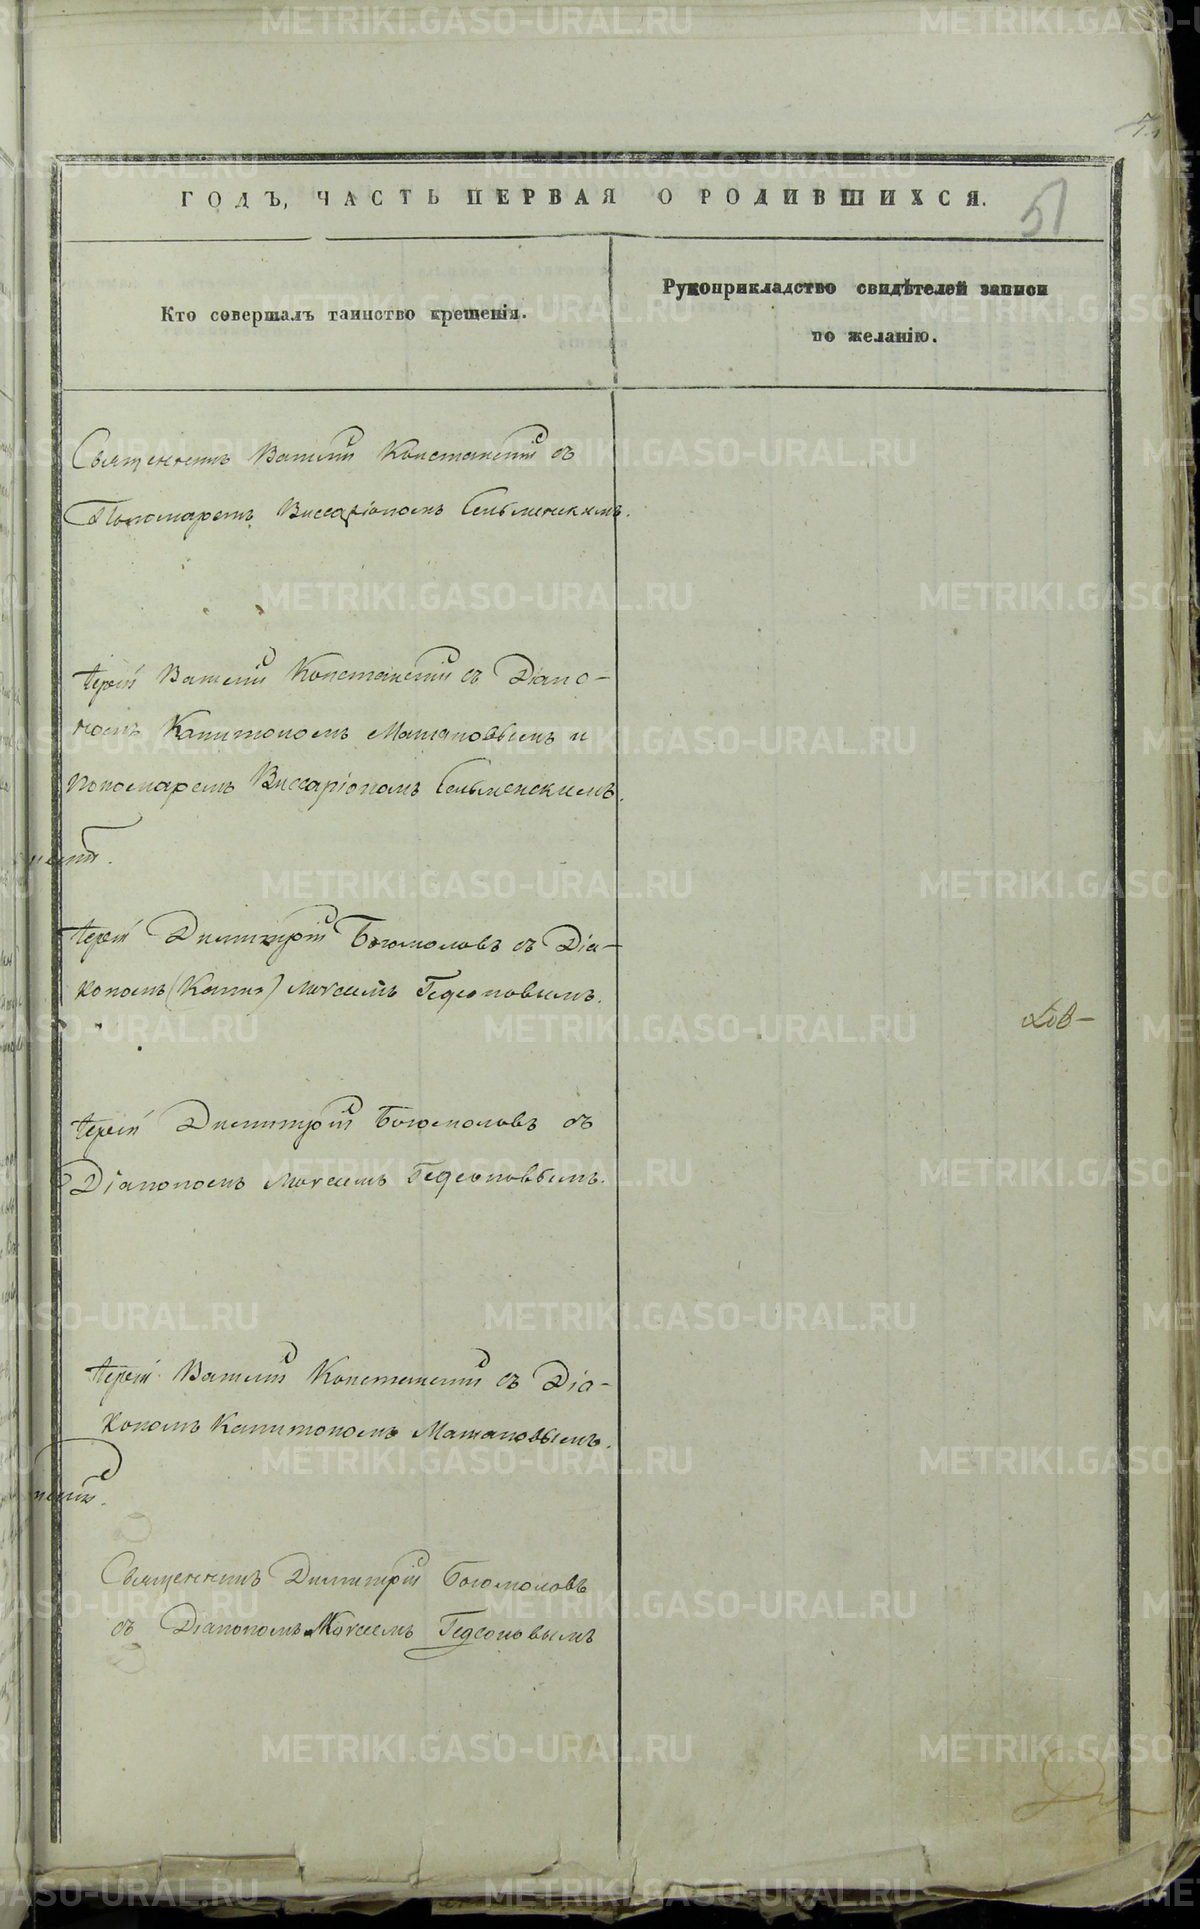 ГОДЪ, ЧАСТЬ ПЕРВАЯ О РОДИВШИХСЯ.
51
Кто совершалъ таинство крещенія.
Рукоприкладство свидѣтелей записи
по желанію.
Священникъ Василій Констанскій съ
Пономаремъ Виссаріономъ Сельменскимъ.
Іерей Василій Констанскій съ Діако-
номъ Капитономъ Матановымъ и
Пономаремъ Виссаріономъ Сельменскимъ.
Іерей Димитрій Богомоловъ съ Діа-
кономъ Моѵсеемъ Гедеоновымъ.
Іерей Димитрій Богомоловъ съ
Діакономъ Моѵсеемъ Гедеоновымъ.
Іерей Василій Констанскій съ Діа-
кономъ Капитономъ Матановымъ.
Священникъ Димитрій Богомоловъ
съ Діакономъ Моѵсеемъ Гедеоновымъ
METRIKI.GASO-URAL.RU